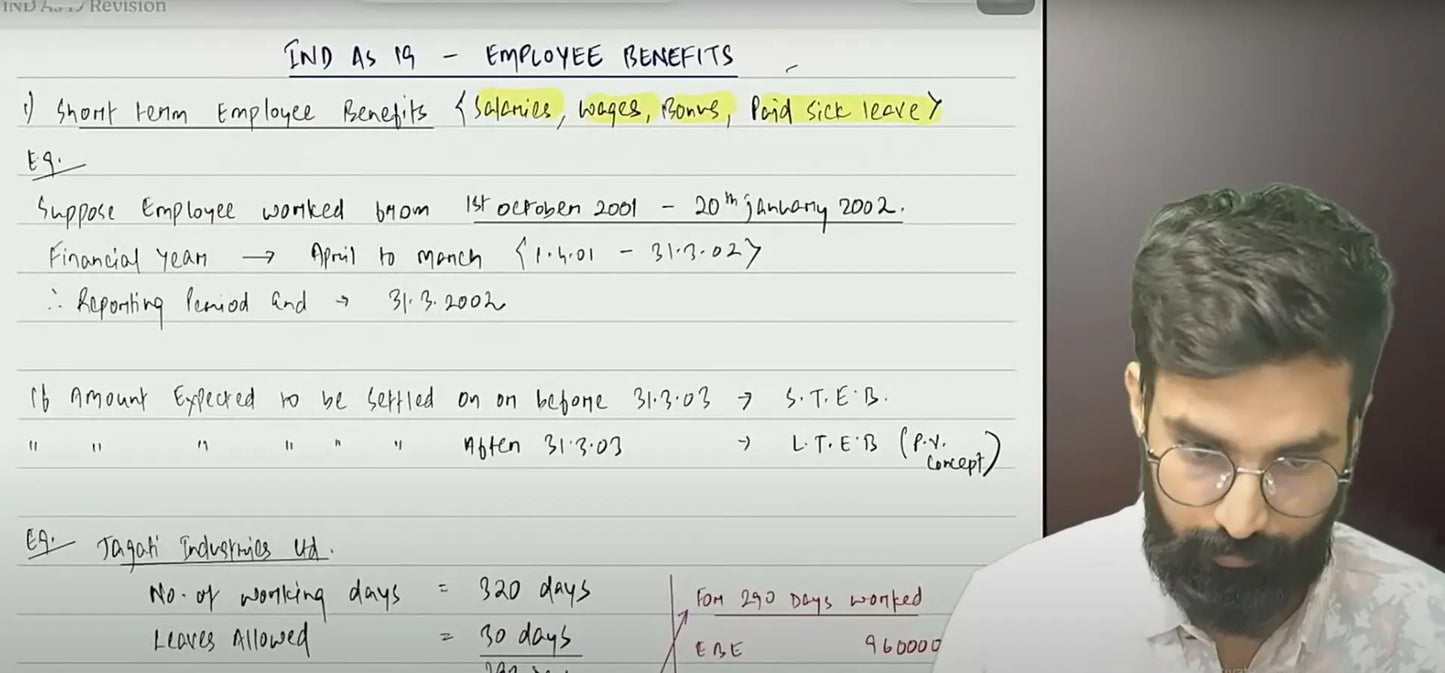 IND AS 19 Revision
IND AS 19 - EMPLOYEE BENEFITS
1) Short term Employee Benefits {Salaries, wages, Bonus, Paid sick leave}
Eg.
Suppose Employee worked from 1st october 2001 - 20th january 2002.
Financial year → April to march {1.4.01 - 31.3.02}
∴ Reporting Period end → 31.3.2002
If Amount Expected to be settled on or before 31.3.03 → S.T.E.B.
" " " " " " After 31.3.03 → L.T.E.B (P.V. concept)
Eg. Jagati Industries Ltd.
No. of working days = 320 days
Leaves Allowed = 30 days
For 290 Days worked
EBE 960000